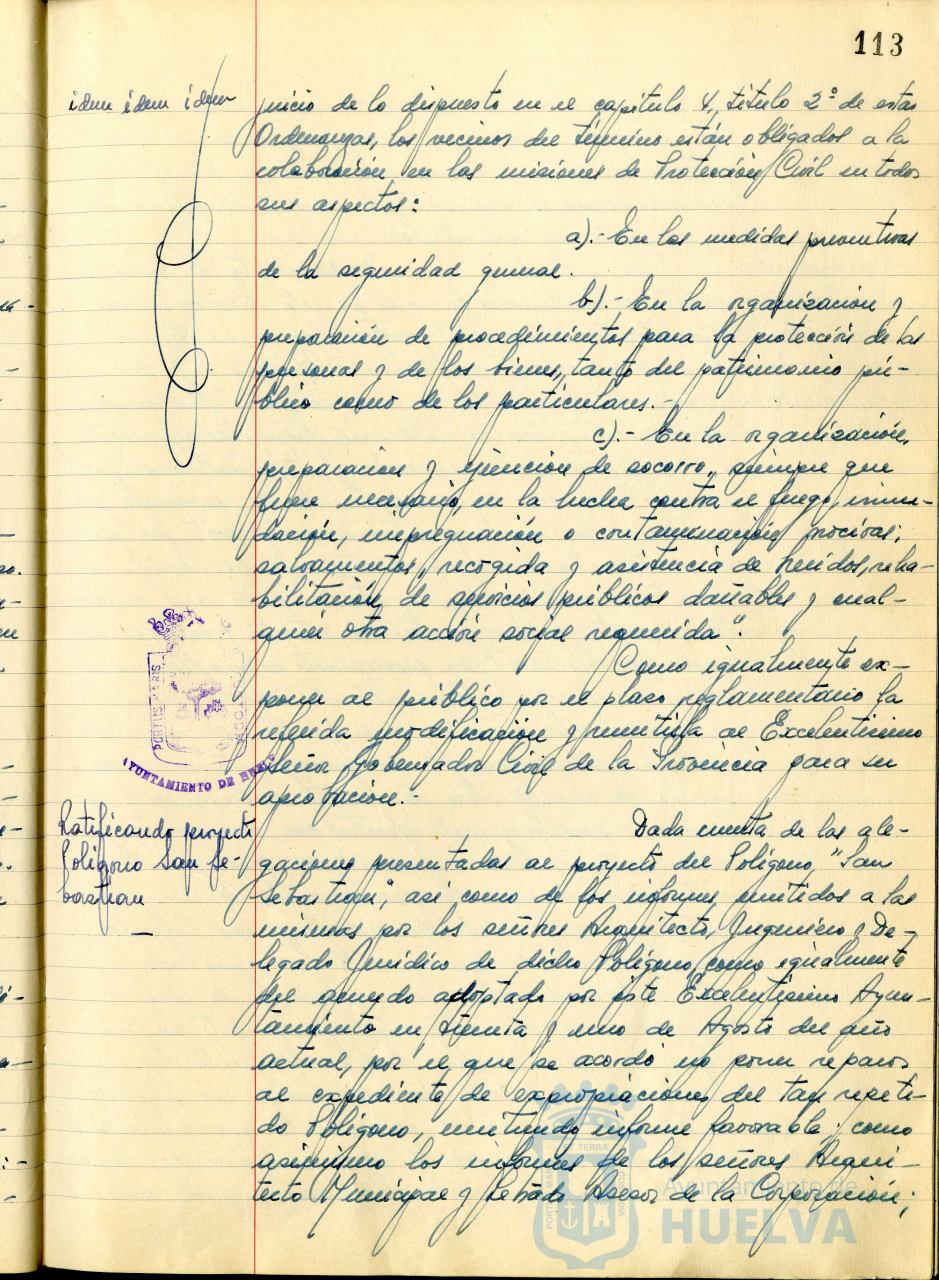 113
idem idem idem
juicio de lo dispuesto en el capítulo 4, título 2º de estas
Ordenanzas, los vecinos del término están obligados a la
colaboración en las misiones de Protección Civil en todos
sus aspectos:
a).- En las medidas preventivas
de la seguridad general.
b).- En la organización y
preparación de procedimientos para la protección de las
personas y de los bienes, tanto del patrimonio pú-
blico como de los particulares.-
c).- En la organización,
preparación y ejención de socorro, siempre que
fuere necesario, en la lucha contra el fuego, inun-
dación, impregnación o contaminación nocivas;
salvamentos, recogida y asistencia de heridos, reha-
bilitación de servicios públicos dañables y cual-
quier otra acción social requerida".
Como igualmente ex-
poner al público por el plazo reglamentario la
referida modificación y remitirla al Excelentísimo
Señor Gobernador Civil de la Provincia para su
aprobación.-
PORTUS MARIS
AYUNTAMIENTO DE HUELVA
Ratificando proyecto
Polígono San Se-
bastian
Dada cuenta de las ale-
gaciones presentadas al proyecto del Polígono "San
Sebastian", así como de los informes emitidos a las
mismas por los señores Arquitecto, Ingeniero y De-
legado Jurídico de dicho Polígono, como igualmente
del acuerdo adoptado por éste Excelentísimo Ayun-
tamiento en treinta y uno de Agosto del año
actual, por el que se acordó no poner reparos
al expediente de expropiaciones del tan repeti-
do Polígono, emitiendo informe favorable; como
asimismo los informes de los señores Arqui-
tecto Municipal y Letrado Asesor de la Corporación;
Ayuntamiento de
HUELVA